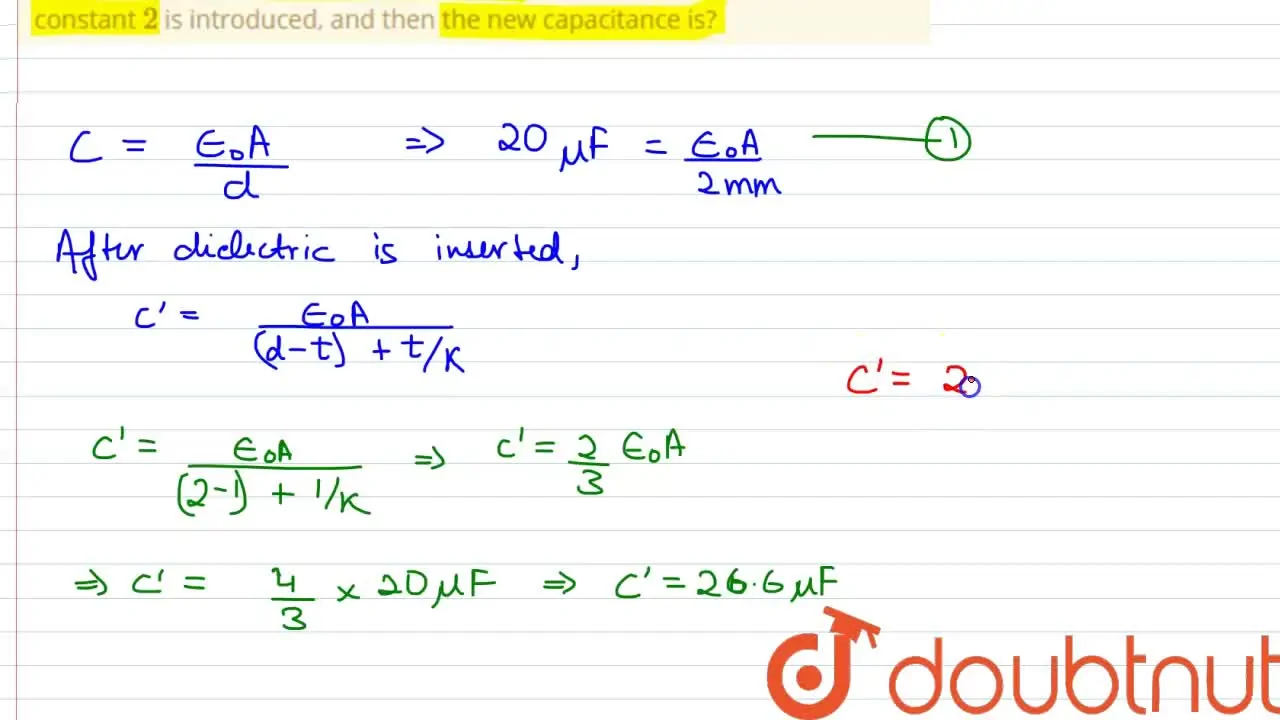 constant 2 is introduced, and then the new capacitance is?
C = ε₀A/d ⇒ 20 μF = ε₀A/2mm ——— ①
After dielectric is inserted,
C' = ε₀A/((d-t) + t/K)
C' = 2
C' = ε₀A/((2-1) + 1/K) ⇒ C' = 2/3 ε₀A
⇒ C' = 4/3 × 20 μF ⇒ C' = 26.6 μF
doubtnut